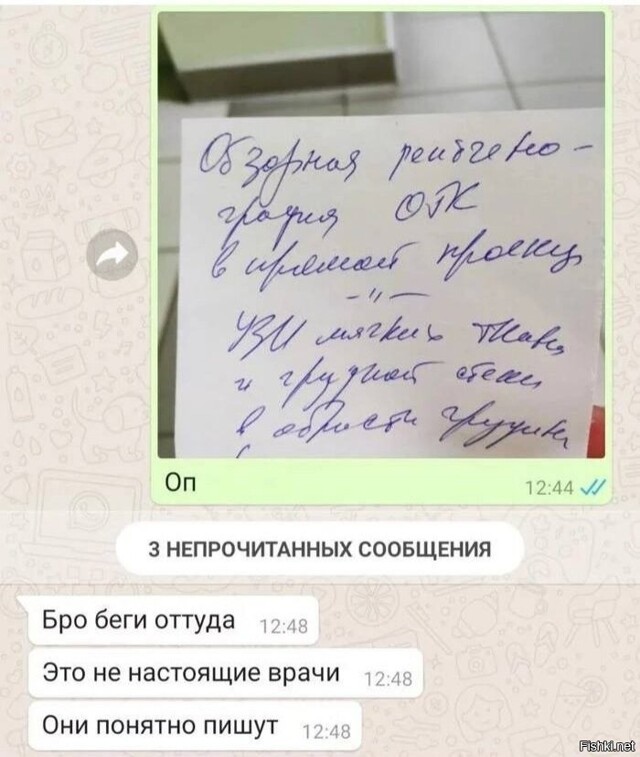 Обзорная рентгено-
графия ОГК
в прямой проекц
-〃-
УЗИ мягких ткане
и грудной стенки
в области грудины
Оп
12:44
3 НЕПРОЧИТАННЫХ СООБЩЕНИЯ
Бро беги оттуда 12:48
Это не настоящие врачи 12:48
Они понятно пишут 12:48
Fishki.net